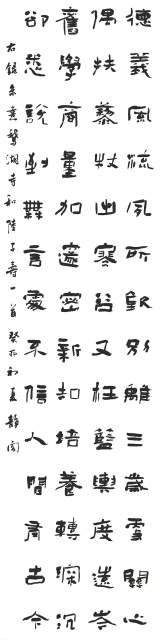 德義風流夙所欽別離三載更關心
偶扶藜杖出寒谷又枉籃輿度遠岑
舊學商量加邃密新知培養轉深沉
卻愁說到無言處不信人間有古今
右錄朱熹鵝湖寺和陸子壽一首 癸亥初夏 靜